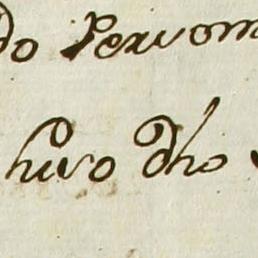 do Pervom
huvo dho